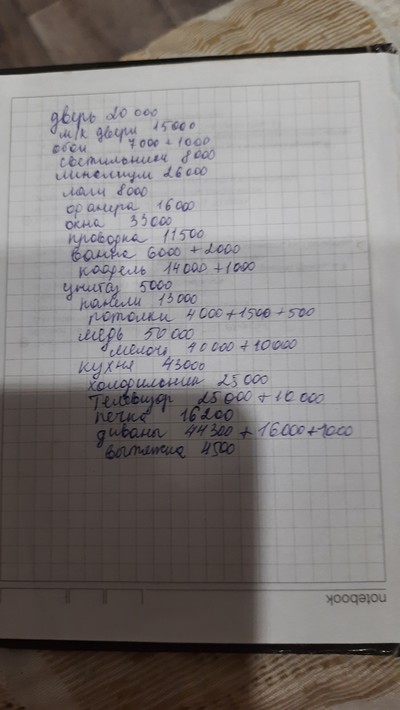 дверь 20 000
м/к двери 15000
обои 7000 + 1000
светильники 8000
линолиум 26000
лаги 8000
фанера 16000
окна 33000
проводка 11500
ванна 6000 + 2000
кафель 14000 + 1000
унитаз 5000
панели 13000
потолки 4000 + 1500 + 500
медь 50 000
мелочь 40000 + 10000
кухня 43000
холодильник 25000
Телевизор 25000 + 10 000
печка 16200
диваны 44300 + 16000 + 1000
вытяжка 4500
notebook